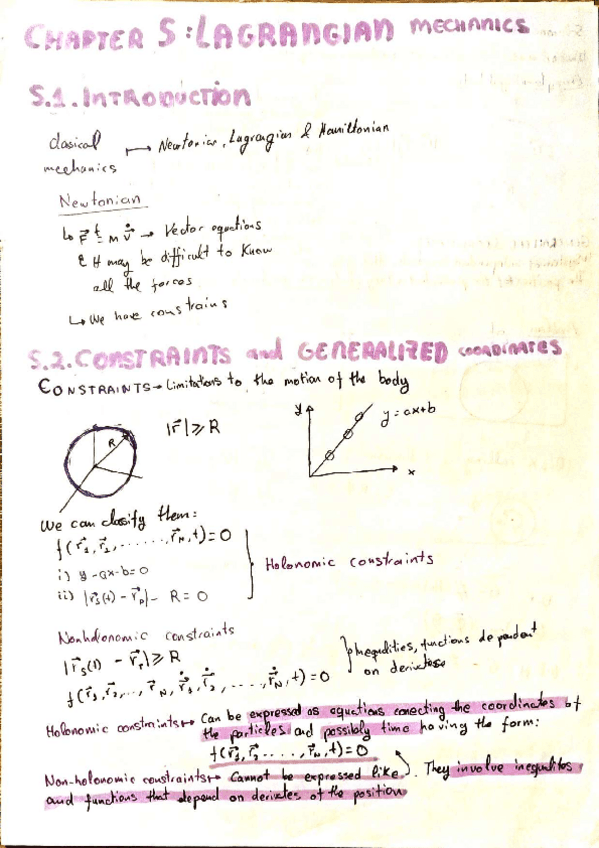 CHAPTER 5: LAGRANGIAN MECHANICS
5.1. INTRODUCTION
clasical mechanics ↦ Newtonian, Lagrangian & Hamiltonian
Newtonian
↳ F⃗ = m v⃗̇ → Vector equations
& It may be difficult to know
all the forces
↳ We have constrains
5.2. CONSTRAINTS and GENERALIZED COORDINATES
CONSTRAINTS → Limitations to the motion of the body
R
|r⃗| ≥ R
y
y = ax+b
x
We can classify them:
f(r⃗1, r⃗2, ......, r⃗N, t) = 0
i) y - ax - b = 0
ii) |r⃗s(t) - r⃗p| - R = 0
Holonomic constraints
Nonholonomic constraints
|r⃗s(t) - r⃗p| ≥ R
f(r⃗1, r⃗2, ..., r⃗N, r⃗̇1, r⃗̇2, ...., r⃗̇N, t) = 0
Inequalities, functions dependant
on derivatese
Holonomic constraints ↦ Can be expressed as equations conecting the coordinates of
the particles and possibly time having the form:
f(r⃗1, r⃗2 ....., r⃗N, t) = 0
Non-holonomic constraints ↦ Cannot be expressed like. They involve inequalities
and functions that depend on derivates of the position